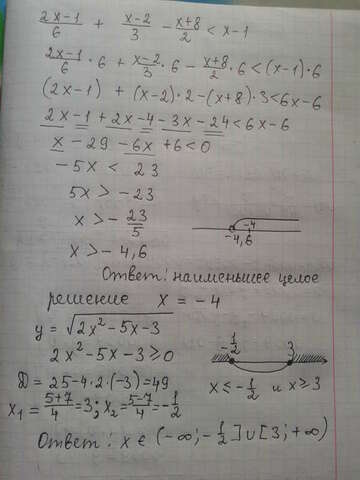 (2x-1)/6 + (x-2)/3 - (x+8)/2 < x-1
(2x-1)/6 · 6 + (x-2)/3 · 6 - (x+8)/2 · 6 < (x-1) · 6
(2x-1) + (x-2)·2-(x+8)·3<6x-6
2x-1+2x-4-3x-24<6x-6
x-29-6x+6<0
-5x < 23
5x > -23
x > - 23/5
-4
-4,6
x > -4,6
Ответ: наименьшее целое
решение x = -4
y = √(2x²-5x-3)
2x²-5x-3≥0
-1/2 3
D = 25-4·2·(-3)=49
x ≤ -1/2 и x ≥ 3
x₁ = (5+7)/4 = 3; x₂ = (5-7)/4 = -1/2
Ответ: x ∈ (-∞; -1/2] ∪ [3; +∞)